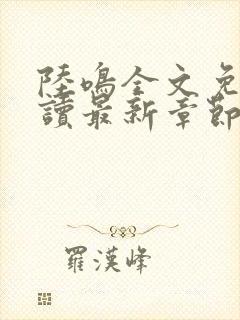 陸鳴全文免
讀最新章節
羅漢峰